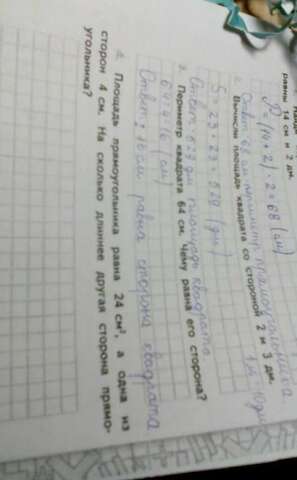 равны 14 см и 2 дм.
P=(14+2)·2=68 (см)
Ответ 68 см периметр прямоугольника
2. Вычисли площадь квадрата со стороной 2 м 3 дм.
1 м = 10 дм
S = 23 · 23 = 529 (дм)
Ответ 529 дм площадь квадрата
3. Периметр квадрата 64 см. Чему равна его сторона?
64:4=16 (см)
Ответ: 16 см равна сторона квадрата
4. Площадь прямоугольника равна 24 см², а одна из
сторон 4 см. На сколько длиннее другая сторона прямо-
угольника?